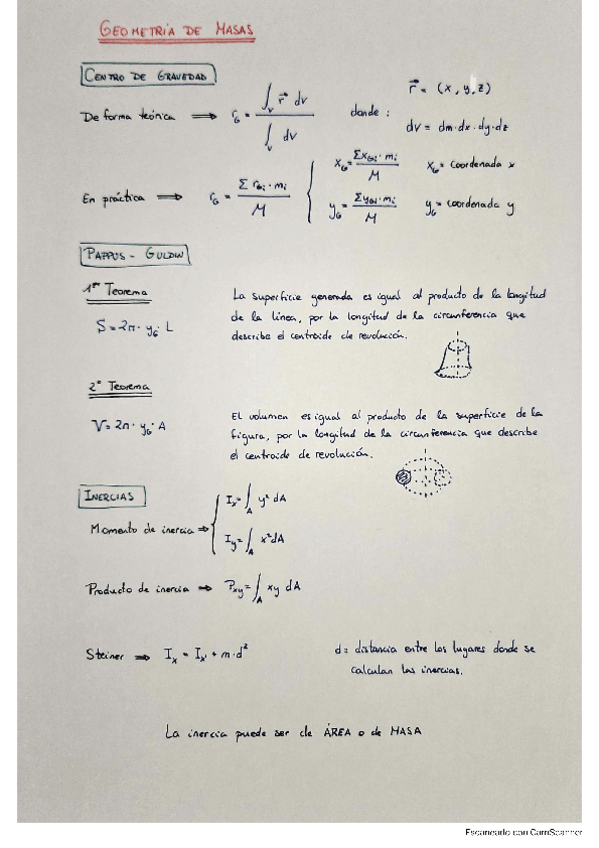 GEOMETRÍA DE MASAS
CENTRO DE GRAVEDAD
De forma teórica ⟹ r_G = ∫_V r⃗ dv / ∫_V dv donde : r⃗ = (x, y, z)
dv = dm·dx·dy·dz
En práctica ⟹ r_G = Σ r_Gi · m_i / M { x_G = Σx_Gi · m_i / M x_G = coordenada x
y_G = Σy_Gi · m_i / M y_G = coordenada y
PAPPUS - GULDIN
1er Teorema
S = 2π · y_G · L
La superficie generada es igual al producto de la longitud
de la línea, por la longitud de la circunferencia que
describe el centroide de revolución.
2º Teorema
V = 2π · y_G · A
El volumen es igual al producto de la superficie de la
figura, por la longitud de la circunferencia que describe
el centroide de revolución.
INERCIAS
Momento de inercia ⟹ { I_x = ∫_A y² dA
I_y = ∫_A x² dA
Producto de inercia ⟹ P_xy = ∫_A xy dA
Steiner ⟹ I_x = I_x' + m·d² d = distancia entre los lugares donde se
calculan las inercias.
La inercia puede ser de ÁREA o de MASA
Escaneado con CamScanner